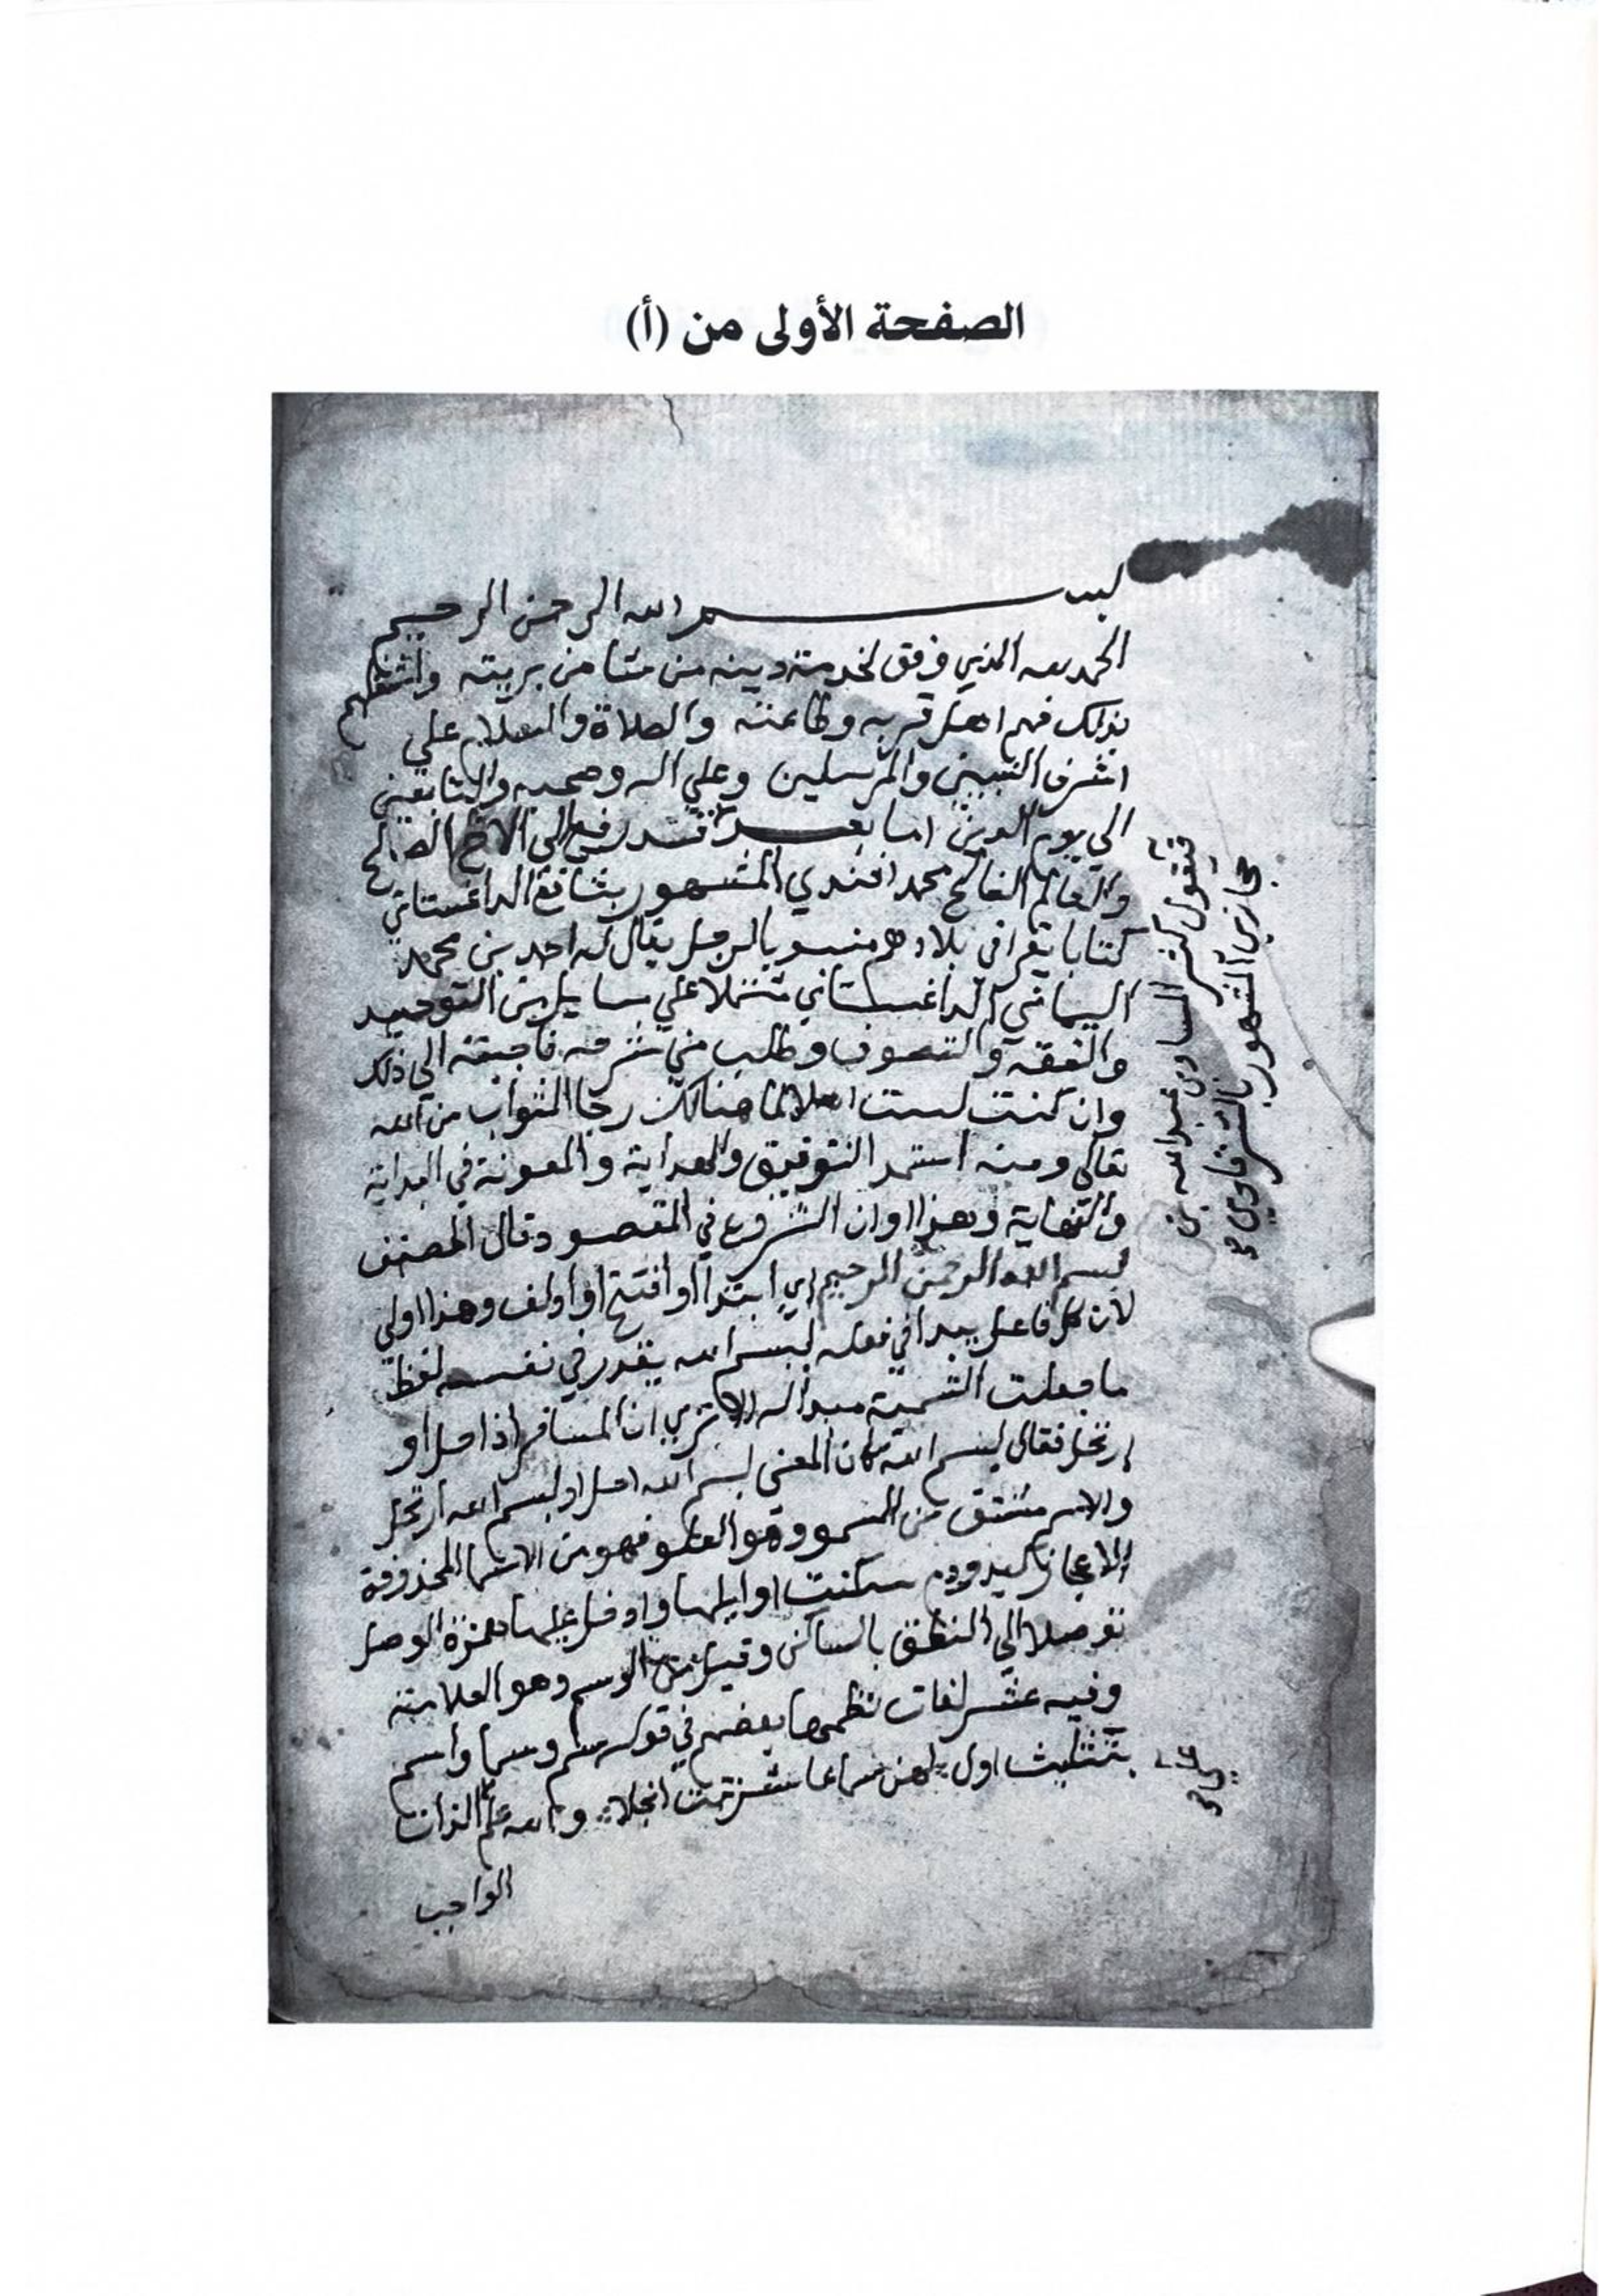 الصفحة الأولى من (أ)
بسم الله الرحمن الرحيم
الحمد لله الذي وفق لخدمة دينه من شا من بريته واشغلهم
بذلك فهم اهل قربه وطاعته والصلاة والسلام علي
اشرف النبيين والمرسلين وعلي اله وصحبه والتابعين
الي يوم الدين اما بعد فقد رفع الي الاخ الصالح
والعالم الفالح محمد افندي المشهور بشافع الداغستاني
كتابا يقرا في بلادهم منسوبا لرجل يقال له احمد بن محمد
اليماني الداغستاني مشتملا علي مسايل من التوحيد
والفقه والتصوف وطلب مني شرحه فاجبته الي ذلك
وان كنت لست اهلا لما هنالك رجا الثواب من الله
تعالي ومنه استمد التوفيق والهداية والمعونة في البداية
والنهاية وهذا اوان الشروع في المقصود قال المصنف
بسم الله الرحمن الرحيم اي ابتدا او افتتح او اولف وهذا اولي
لان كل فاعل يبدا في فعله ببسم الله يقدر في نفسه لفظ
ما جعلت التسمية مبدا له الا تري ان المسافر اذا حل او
ارتحل فقال بسم الله كان المعني بسم الله احل او بسم الله ارتحل
والاسم مشتق من السمو وهو العلو فهو من الاسما المحذوفة
الاعجاز كيد ودم سكنت اوايلها وادخل عليها همزة الوصل
توصلا الي النطق بالساكن وقيل من الوسم وهو العلامة
وفيه عشر لغات نظمها بعضهم في قوله سم وسما واسم
بتثليث اول لهن سماعا عاشر تمت انجلا والله علم الذات
الواجب
فيقول كثير المساوي عبد الله بن
حجازي المشهور بالشرقاوي